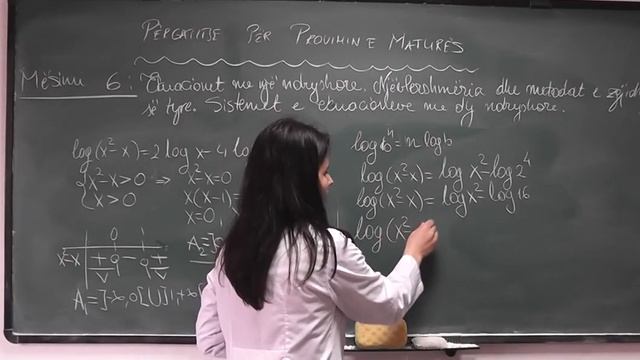 PËRGATITJE PËR PROVIMIN E MATURËS
Mësimi 6: Ekuacionet me një ndryshore. Njëvlershmëria dhe metodat e zgjidh
së tyre. Sistemet e ekuacioneve me dy ndryshore.
log(x²-x)=2 log x-4 lo
{x²-x>0 ⇒ x²-x=0
{x>0 x(x-1)
x=0
0 1
x²-x + 0 - 0 +
A₁=]-∞,0[∪]1,+∞[
A₂=]
log bⁿ = n log b
log(x²-x)= log x²-log 2⁴
log(x²-x)= log x²-log 16
log(x²-